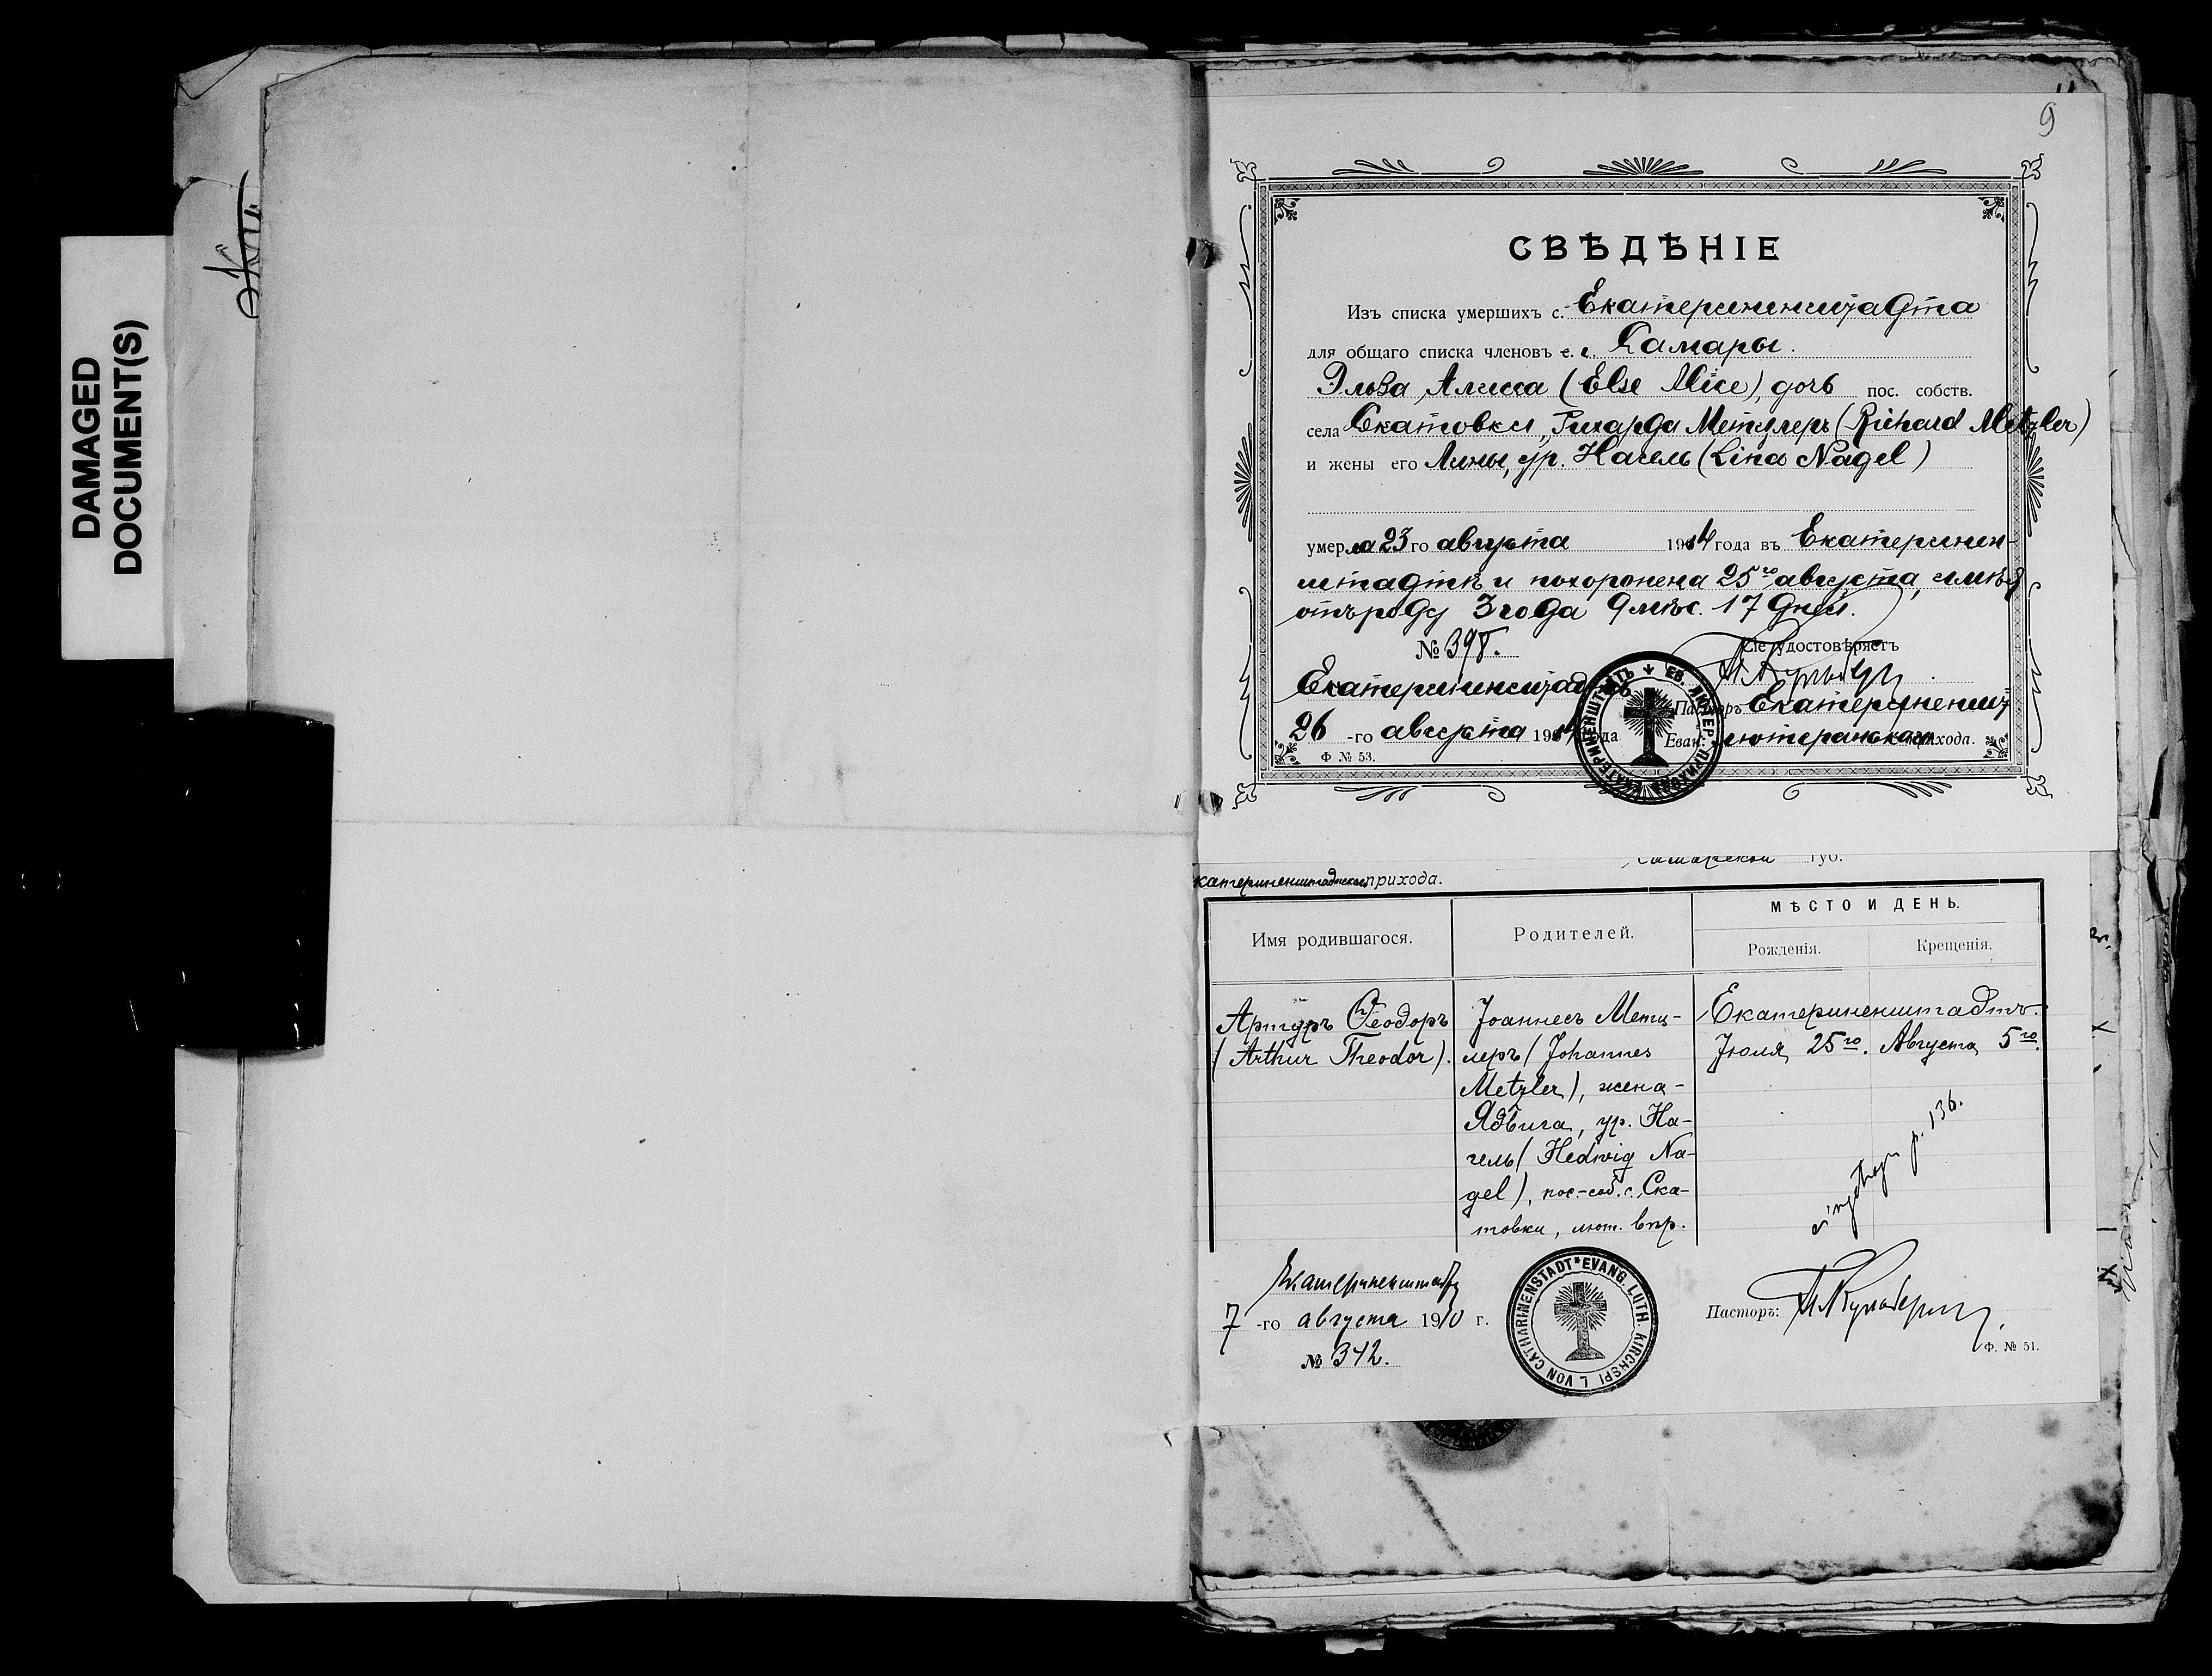 DAMAGED
DOCUMENT(S)
9
СВѢДѢНІЕ
Изъ списка умершихъ с. Екатериненштадта
для общаго списка членовъ с. г. Самары.
Эльза Алиса (Else Alice), дочь пос. собств.
села Скатовки, Рихарда Метцлеръ (Richard Metzler)
и жены его Лины, ур. Нагель (Lina Nagel)
умерла 23го августа 1914 года въ Екатеринен-
штадтѣ и похоронена 25го августа, имѣя
отъ роду 3 года 9 мѣс. 17 дней.
№ 398.
Сіе удостовѣряетъ
Екатериненштадтъ
Пасторъ Екатериненшт.
26 -го августа 1914 года
Еван. лютеранскаго прихода.
Ф № 53.
ЕВ. ЛЮТЕР. ПРИХОДА ЕКАТЕРИНЕНШТАТЪ
Самарской губ.
катериненштадтскаго прихода.
Имя родившагося.
Родителей.
МѢСТО И ДЕНЬ.
Рожденія.
Крещенія.
Артуръ Ѳеодоръ
(Arthur Theodor).
Іоаннесъ Метц-
леръ (Johannes
Metzler), жена-
Ядвига, ур. На-
гель (Hedwig Na-
gel), пос.-соб. с. Ска-
товки, лют. впр.
Екатериненштадтъ.
Іюля 25го. Августа 5го.
p. 136.
Екатериненштадтъ
7 -го августа 1910 г.
№ 342.
EVANG. LUTH. KIRCHSPIEL VON CATHARINENSTADT
Пасторъ:
Ф. № 51.